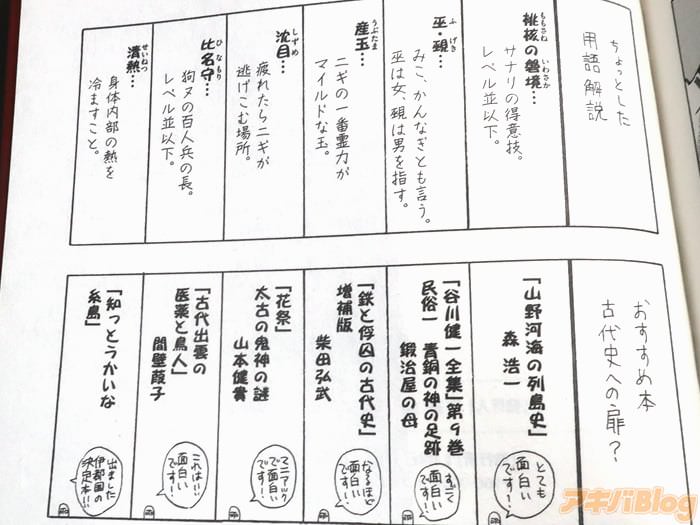 ちょっとした
用語解説
桃核の磐境…
ももさね いわさか
サナリの得意技。
レベル並以下。
巫・覡…
ふ げき
みこ、かんなぎとも言う。
巫は女、覡は男を指す。
産玉…
うぶたま
ニギの一番霊力が
マイルドな玉。
沈目…
しずめ
疲れたらニギが
逃げこむ場所。
比名守…
ひなもり
狗ヌの百人兵の長。
レベル並以下。
清熱…
せいねつ
身体内部の熱を
冷ますこと。
おすすめ本
古代史への扉?
「山野河海の列島史」
森浩一
とても
面白い
です!
「谷川健一全集」第9巻
民俗一 青銅の神の足跡
鍛冶屋の母
すごく
面白い
です!
「鉄と俘囚の古代史」
増補版
柴田弘武
なるほど
面白い
です!
「花祭」
太古の鬼神の謎
山本健貴
マニアック
で面白い
です!
「古代出雲の
医薬と鳥人」
間壁葭子
これは!!
面白い
です!
「知っとうかいな
糸島」
出ました
伊都国の
決定本!!
アキバBlog